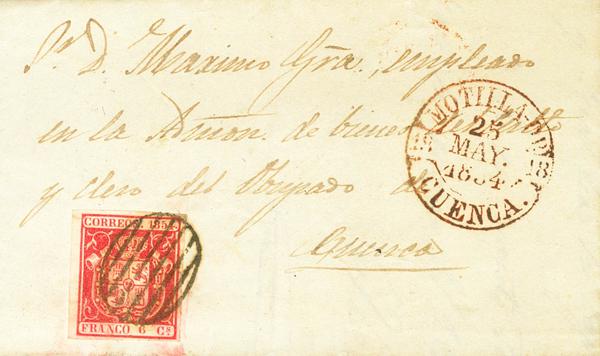 Sr. D. Maximo Gra., empleado
en la Admon. de bienes del
y Clero del Obispado de
Cuenca
MOTILLA
25
MAY.
1854
CUENCA.
CORREOS. 1854.
FRANCO 6 Cs.